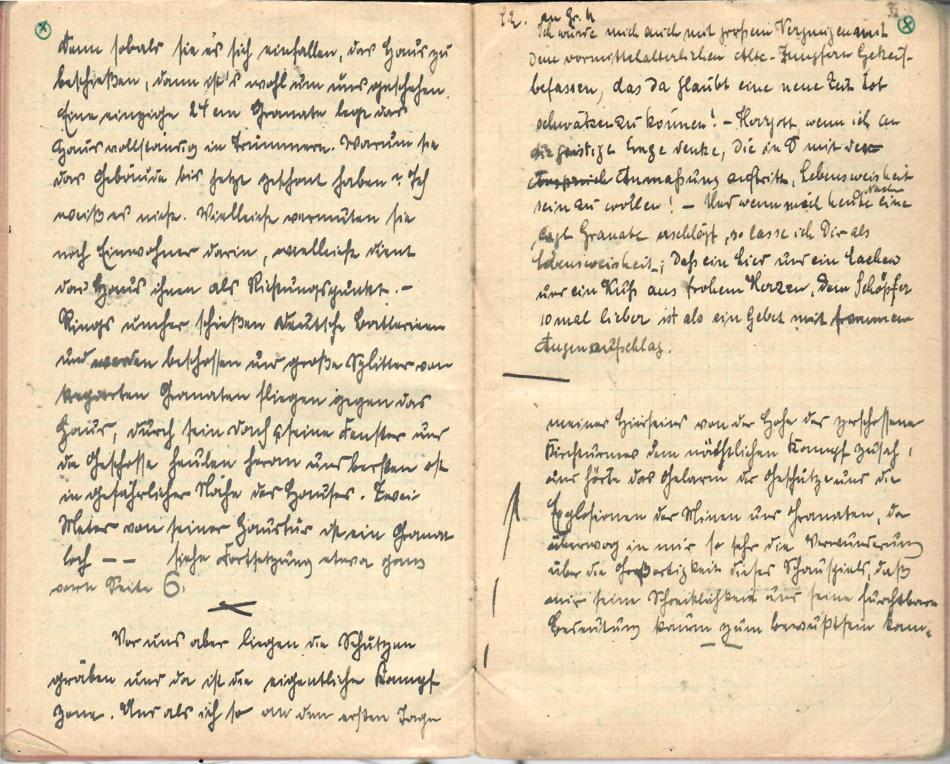 denn sobald sie es sich einfallen, das Haus zu
beschießen, dann ist's wohl um uns geschehen.
Eine einzige 24 cm Granate legt das
Haus vollständig in Trümmern. Warum sie
das Gebäude bis jetzt geschont haben? Ich
weiß es nicht. Vielleicht vermuten sie
noch Einwohner darin, vielleicht dient
das Haus ihnen als Richtungspunkt. –
Rings umher schießen deutsche Batterieen
und werden beschossen und große Splitter von
Granaten fliegen gegen das
Haus, durch sein Dach & seine Fenster und
die Geschosse heulen heran und bersten oft
in gefährlicher Nähe des Hauses. Zwei
Meter von seiner Haustür ist ein Granat
loch – – siehe Fortsetzung etwa ganz
vorn Seite 6.
Vor uns aber liegen die Schützen
gräben und da ist die eigentliche Kampf
zone. Und als ich so an dem ersten Tage
22. an Gr. H
Ich würde mich auch mit großem Vergnügen mit
dem vormittelalterlichen Alte-Jungfern
befassen, das da glaubt eine neue Zeit tot
schwätzen zu können! – Herrgott, wenn ich an
die geistige Enge denke, die in D mit der
Anmaßung auftritt, Lebensweisheit
sein zu wollen! – Und wenn mich heute Nacht eine
Granate erschlägt, so lasse ich Dir als
Lebensweisheit: Daß ein Lied und ein Lachen
und ein Kuß aus frohem Herzen, dem Schöpfer
10 mal lieber ist als ein Gebet mit frommem
Augenaufschlag.
meines Hierseins von der Höhe des zerschossenen
Kirchturmes dem nächtlichen Kampf zusah,
und hörte das Gelärm der Geschütze und die
Explosionen der Minen und Granaten, da
überwog in mir so sehr die Verwunderung
über die Großartigkeit dieses Schauspiels, daß
mir seine Schrecklichkeit und seine furchtbare
Bedeutung kaum zum Bewußtsein kam.